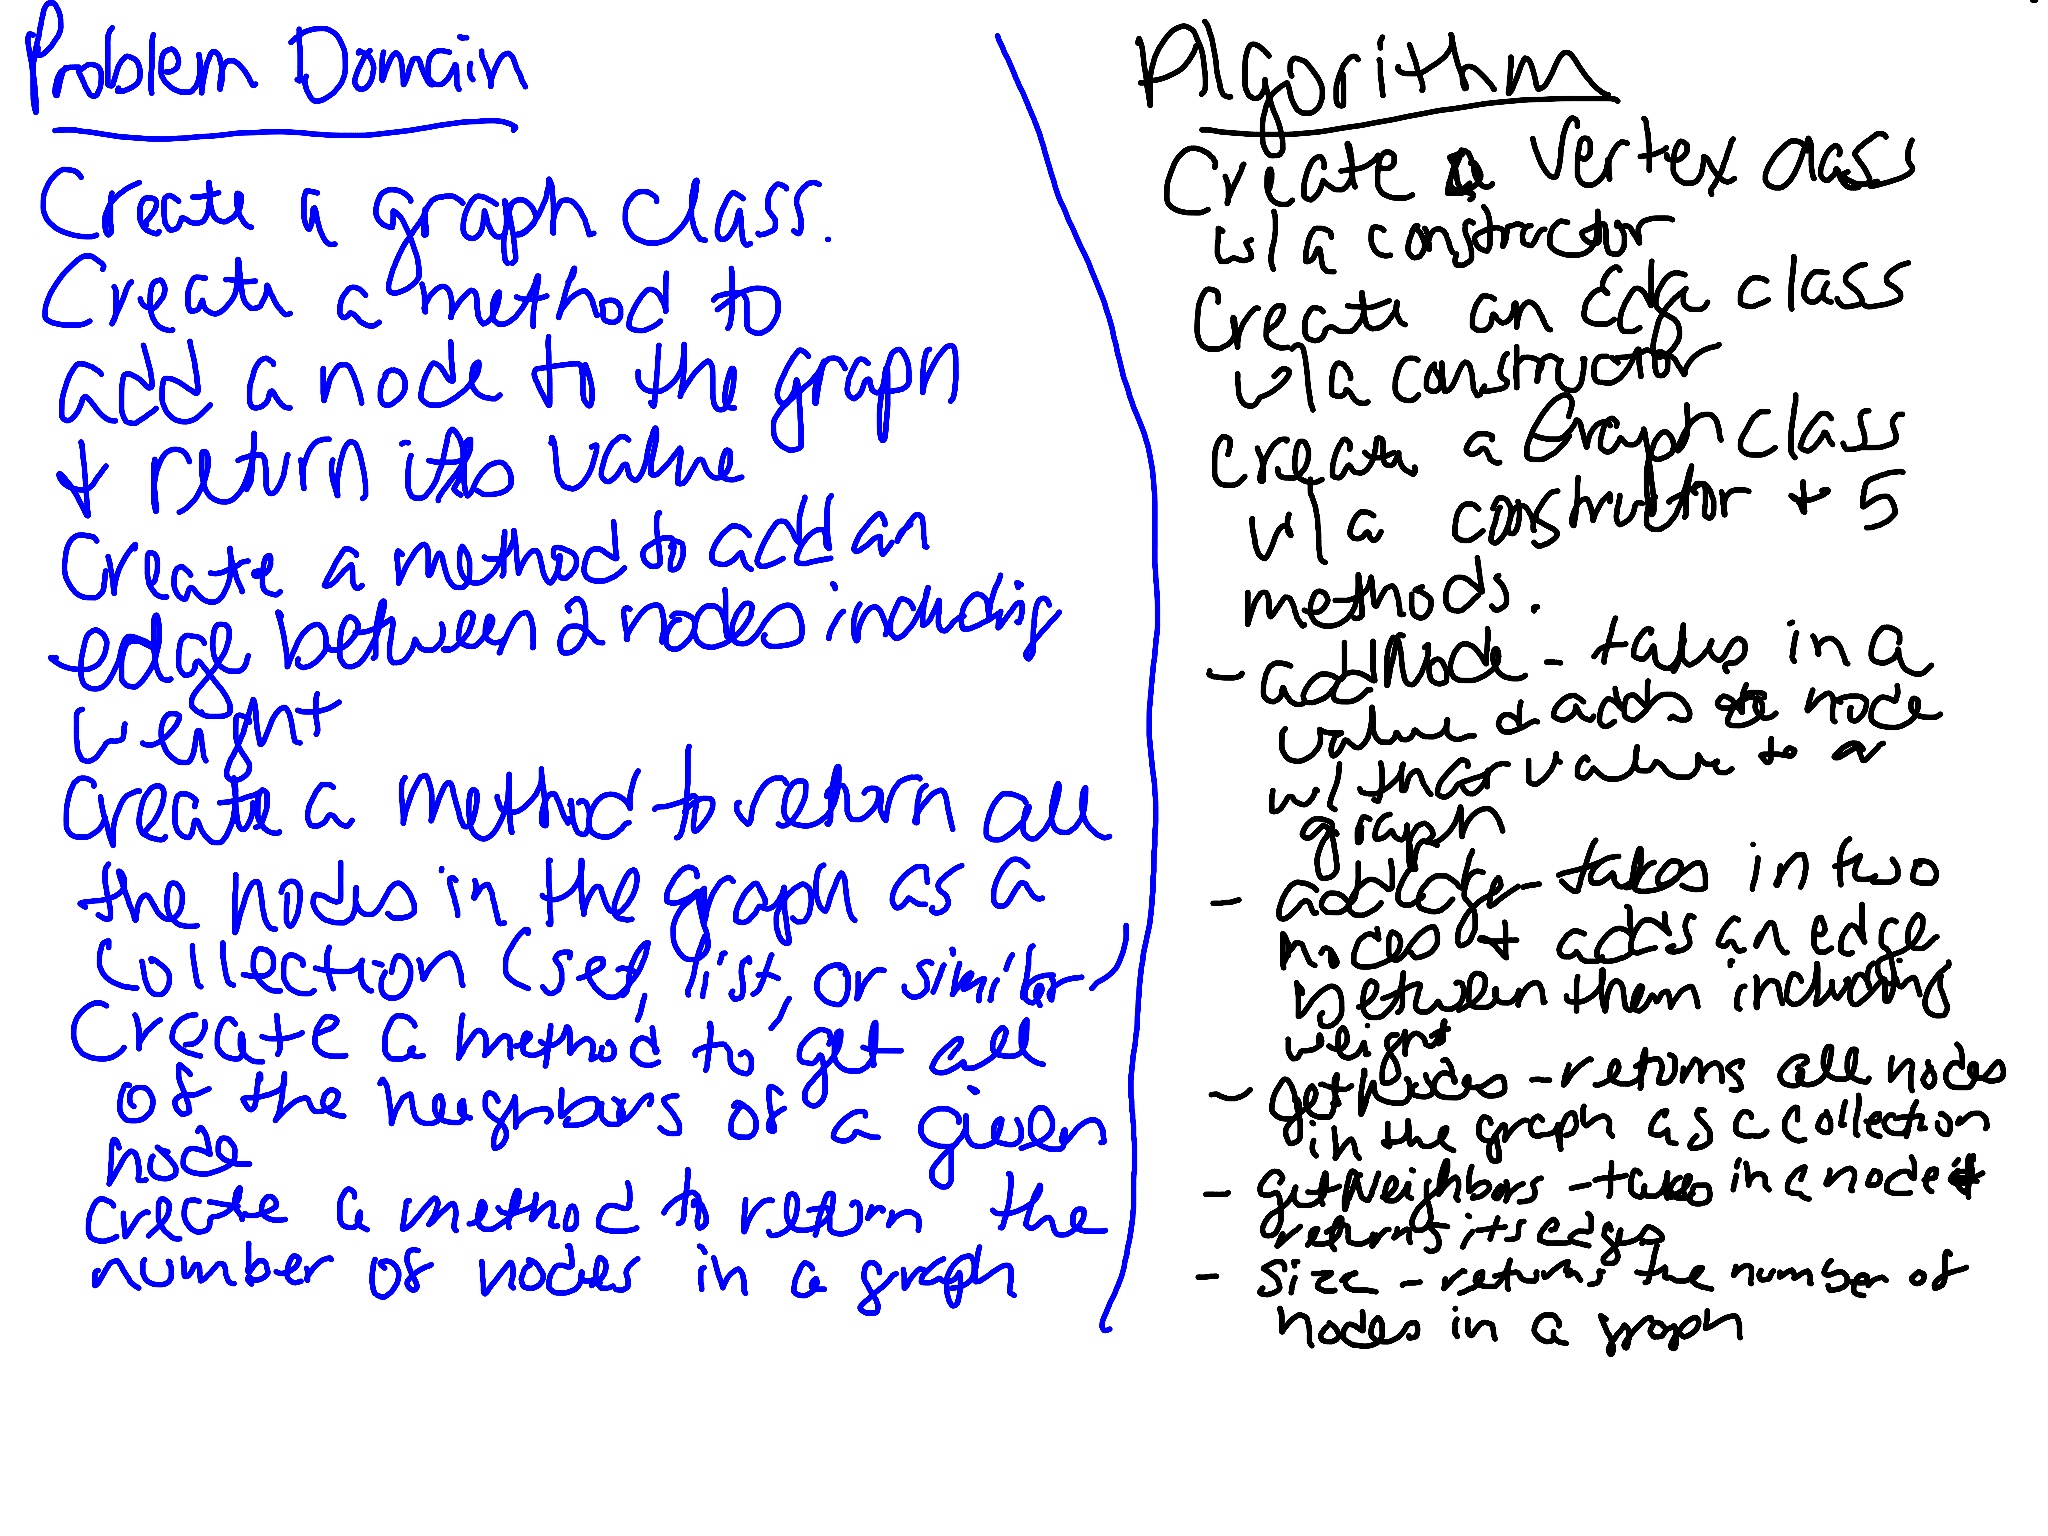 Problem Domain
Create a graph class.
Create a method to
add a node to the graph
+ return its value
Create a method to add an
edge between 2 nodes including
weight
Create a method to return all
the nodes in the graph as a
collection (set, list, or similar)
Create a method to get all
of the neighbors of a given
node
create a method to return the
number of nodes in a graph
Algorithm
Create a Vertex class
w/ a constructor
Create an Edge class
w/ a constructor
Create a Graph class
w/ a constructor + 5
methods.
- addNode - takes in a
value + adds node
w/ that value to a
graph
- addEdge - takes in two
nodes + adds an edge
between them including
weight
- getNodes - returns all nodes
in the graph as a collection
- getNeighbors - takes in a node +
returns its edges
- size - returns the number of
nodes in a graph